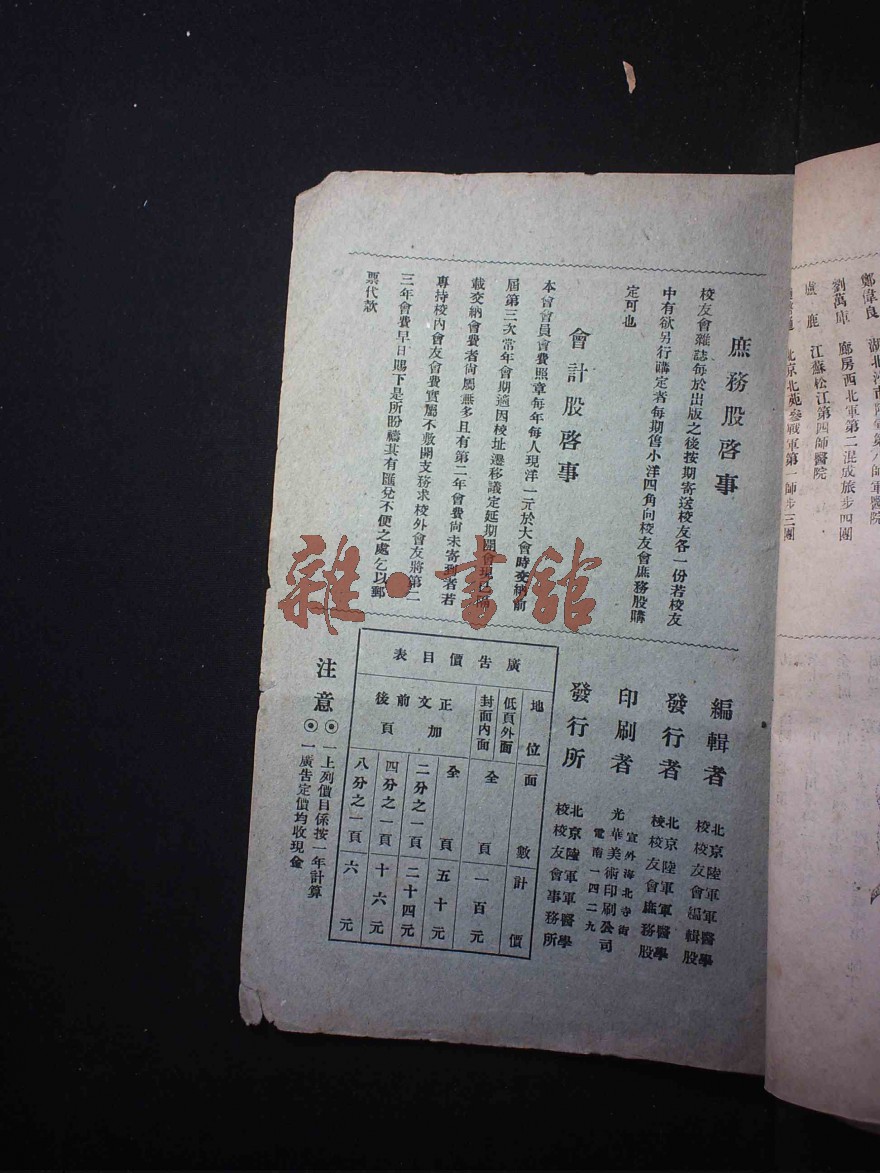 鄭偉良
劉萬庫 廊房西北軍第二混成旅步四團
盧鹿 江蘇松江第四師醫院
北京北苑參戰軍第一師步三團
庶務股啓事
校友會雜誌每於出版之後按期寄送校友各一份若校友
中有欲另行購定者每期售小洋四角向校友會庶務股購
定可也
會計股啓事
本會會員會費照章每年每人現洋一元於大會時交納前
屆第三次常年會期適因校址遷移議定延期開會現已隔
載交納會費者尙屬無多且有第二年會費尙未寄到者若
專持校內會友會費實屬不敷開支務求校外會友將第二
三年會費早日賜下是所盼禱其有匯兌不便之處乞以郵
票代款
編輯者 北京陸軍軍醫學
校校友會編輯股
發行者 北京陸軍軍醫學
校校友會庶務股
印刷者 宣外海北寺街
光華美術印刷公司
電南一四二九
發行所 北京陸軍軍醫學
校校友會事務所
廣告價目表
地位 面數 計價
低頁外面
封面內面 全頁 一百元
正文前
加後頁
全頁 五十元
二分之一頁 二十四元
四分之一頁 十六元
八分之一頁 六元
注意
◉一上列價目係按一年計算
◉一廣告定價均收現金
雜·書館